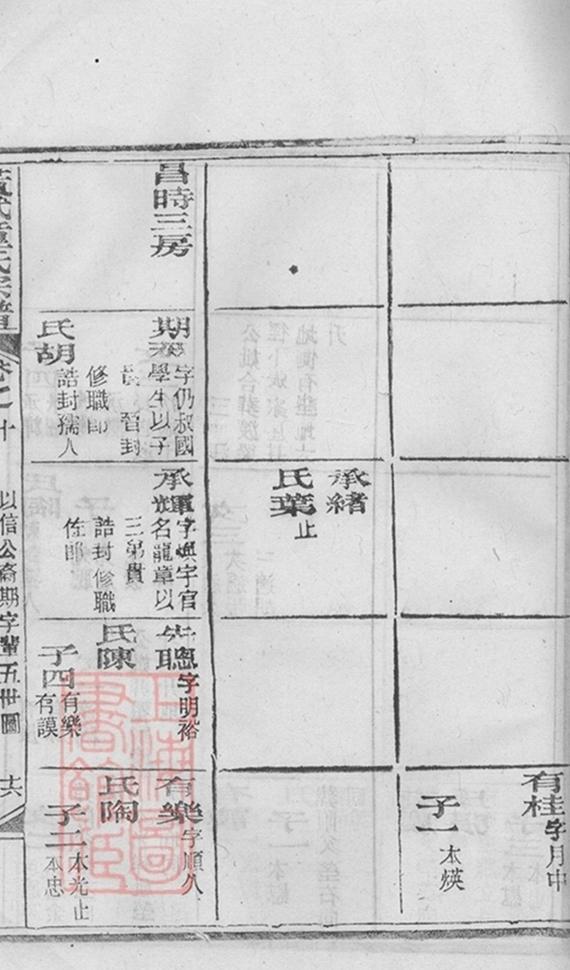 有桂字月中
子一本煐
承緒
氏葉止
昌時三房
期 字仍叔國
學生以子
晉封
修職郎
氏胡誥封孺人
承輝 字官
名龍章以
三弟貴
誥封修職
佐郎
聰字明裕
氏陳
子四有樂
有謨
有樂字順久
氏陶
子二本光止
本忠
氏宗譜
卷之十
以信公裔期字輩五世圖
六
上海圖
書館藏